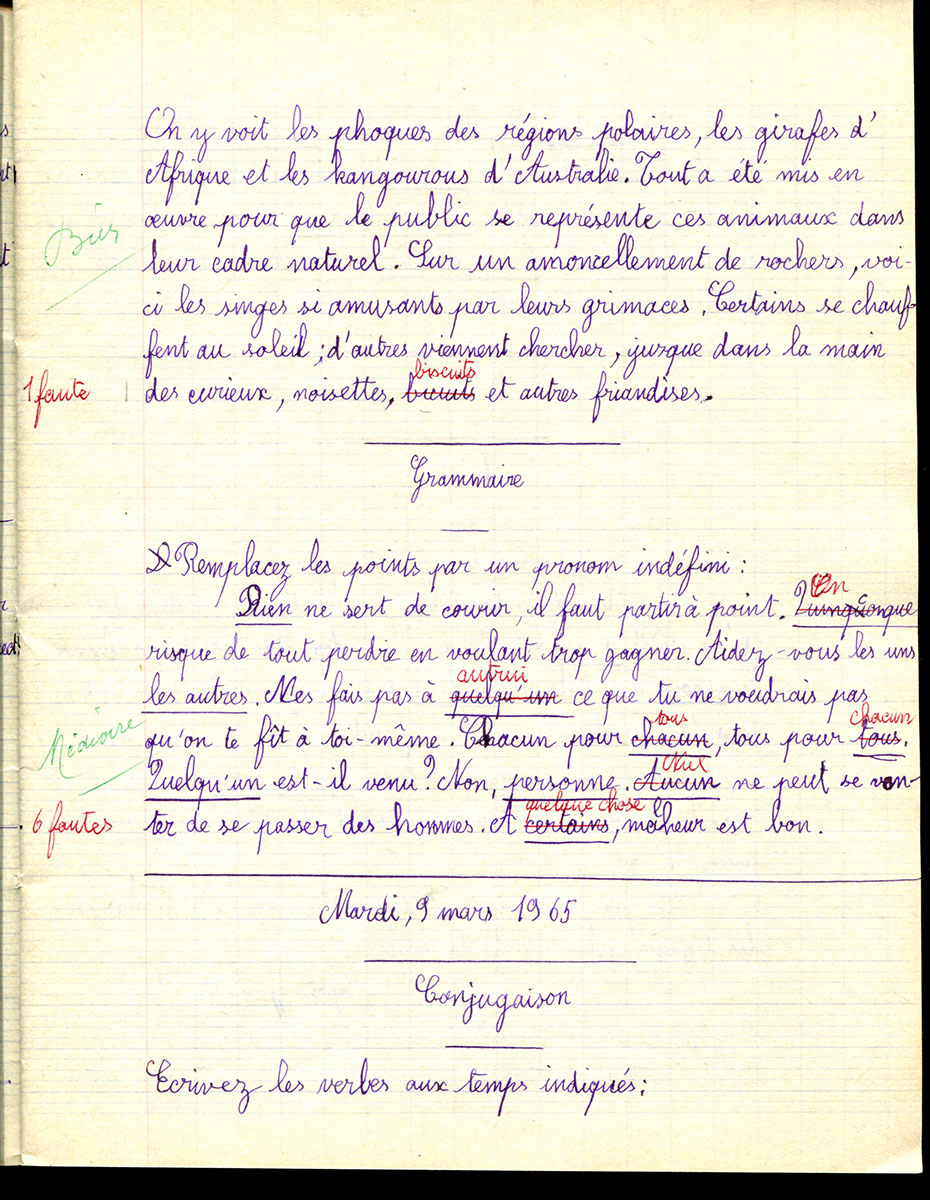 On y voit les phoques des régions polaires, les girafes d'
Afrique et les kangourous d'Australie. Tout a été mis en
œuvre pour que le public se représente ces animaux dans
Bien
leur cadre naturel. Sur un amoncellement de rochers, voi-
ci les singes si amusants par leurs grimaces. Certains se chauf-
fent au soleil ; d'autres viennent chercher, jusque dans la main
biscuits
1 faute
des curieux, noisettes, bicuits et autres friandises.
Grammaire
Remplacez les points par un pronom indéfini :
On
Rien ne sert de courir, il faut partir à point. Quinquonque
risque de tout perdre en voulant trop gagner. Aidez-vous les uns
autrui
les autres. Nes fais pas à quelqu'un ce que tu ne voudrais pas
tous chacun
Médiocre
qu'on te fît à toi-même. Chacun pour chacun, tous pour tous.
Nul
Quelqu'un est-il venu? Non, personne. Aucun ne peut se van-
quelque chose
6 fautes
ter de se passer des hommes. A certains, malheur est bon.
Mardi, 9 mars 1965
Conjugaison
Ecrivez les verbes aux temps indiqués :